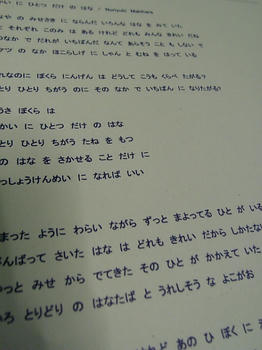 かい に ひとつ だけ の はな / Noriyuki Makihara
なや の みせさき に ならんだ いろんな はな を みて いた
と それぞれ このみ は ある けれど どれも みんな きれい だね
なか で だれが いちばんだ なんて あらそう こと も しない で
ケツ の なか ほこらしげ に しゃんと むね を はって いる
れなのに ぼくら にんげん は どうして こうも くらべ たがる?
とり ひとり ちがう のに その なか で いちばん に なりたがる?
うさ ぼくら は
かい に ひとつ だけ の はな
とり ひとり ちがう たね を もつ
の はな を さかせる こと だけ に
っしょうけんめい に なれば いい
まった ように わらい ながら ずっと まよってる ひと が いる
んばって さいた はな は どれも きれい だから しかたな
っと みせ から でてきた その ひと が かかえて いた
ろ とりどり の はなたば と うれしそう な よこがお
けど あの ひ ぼく に